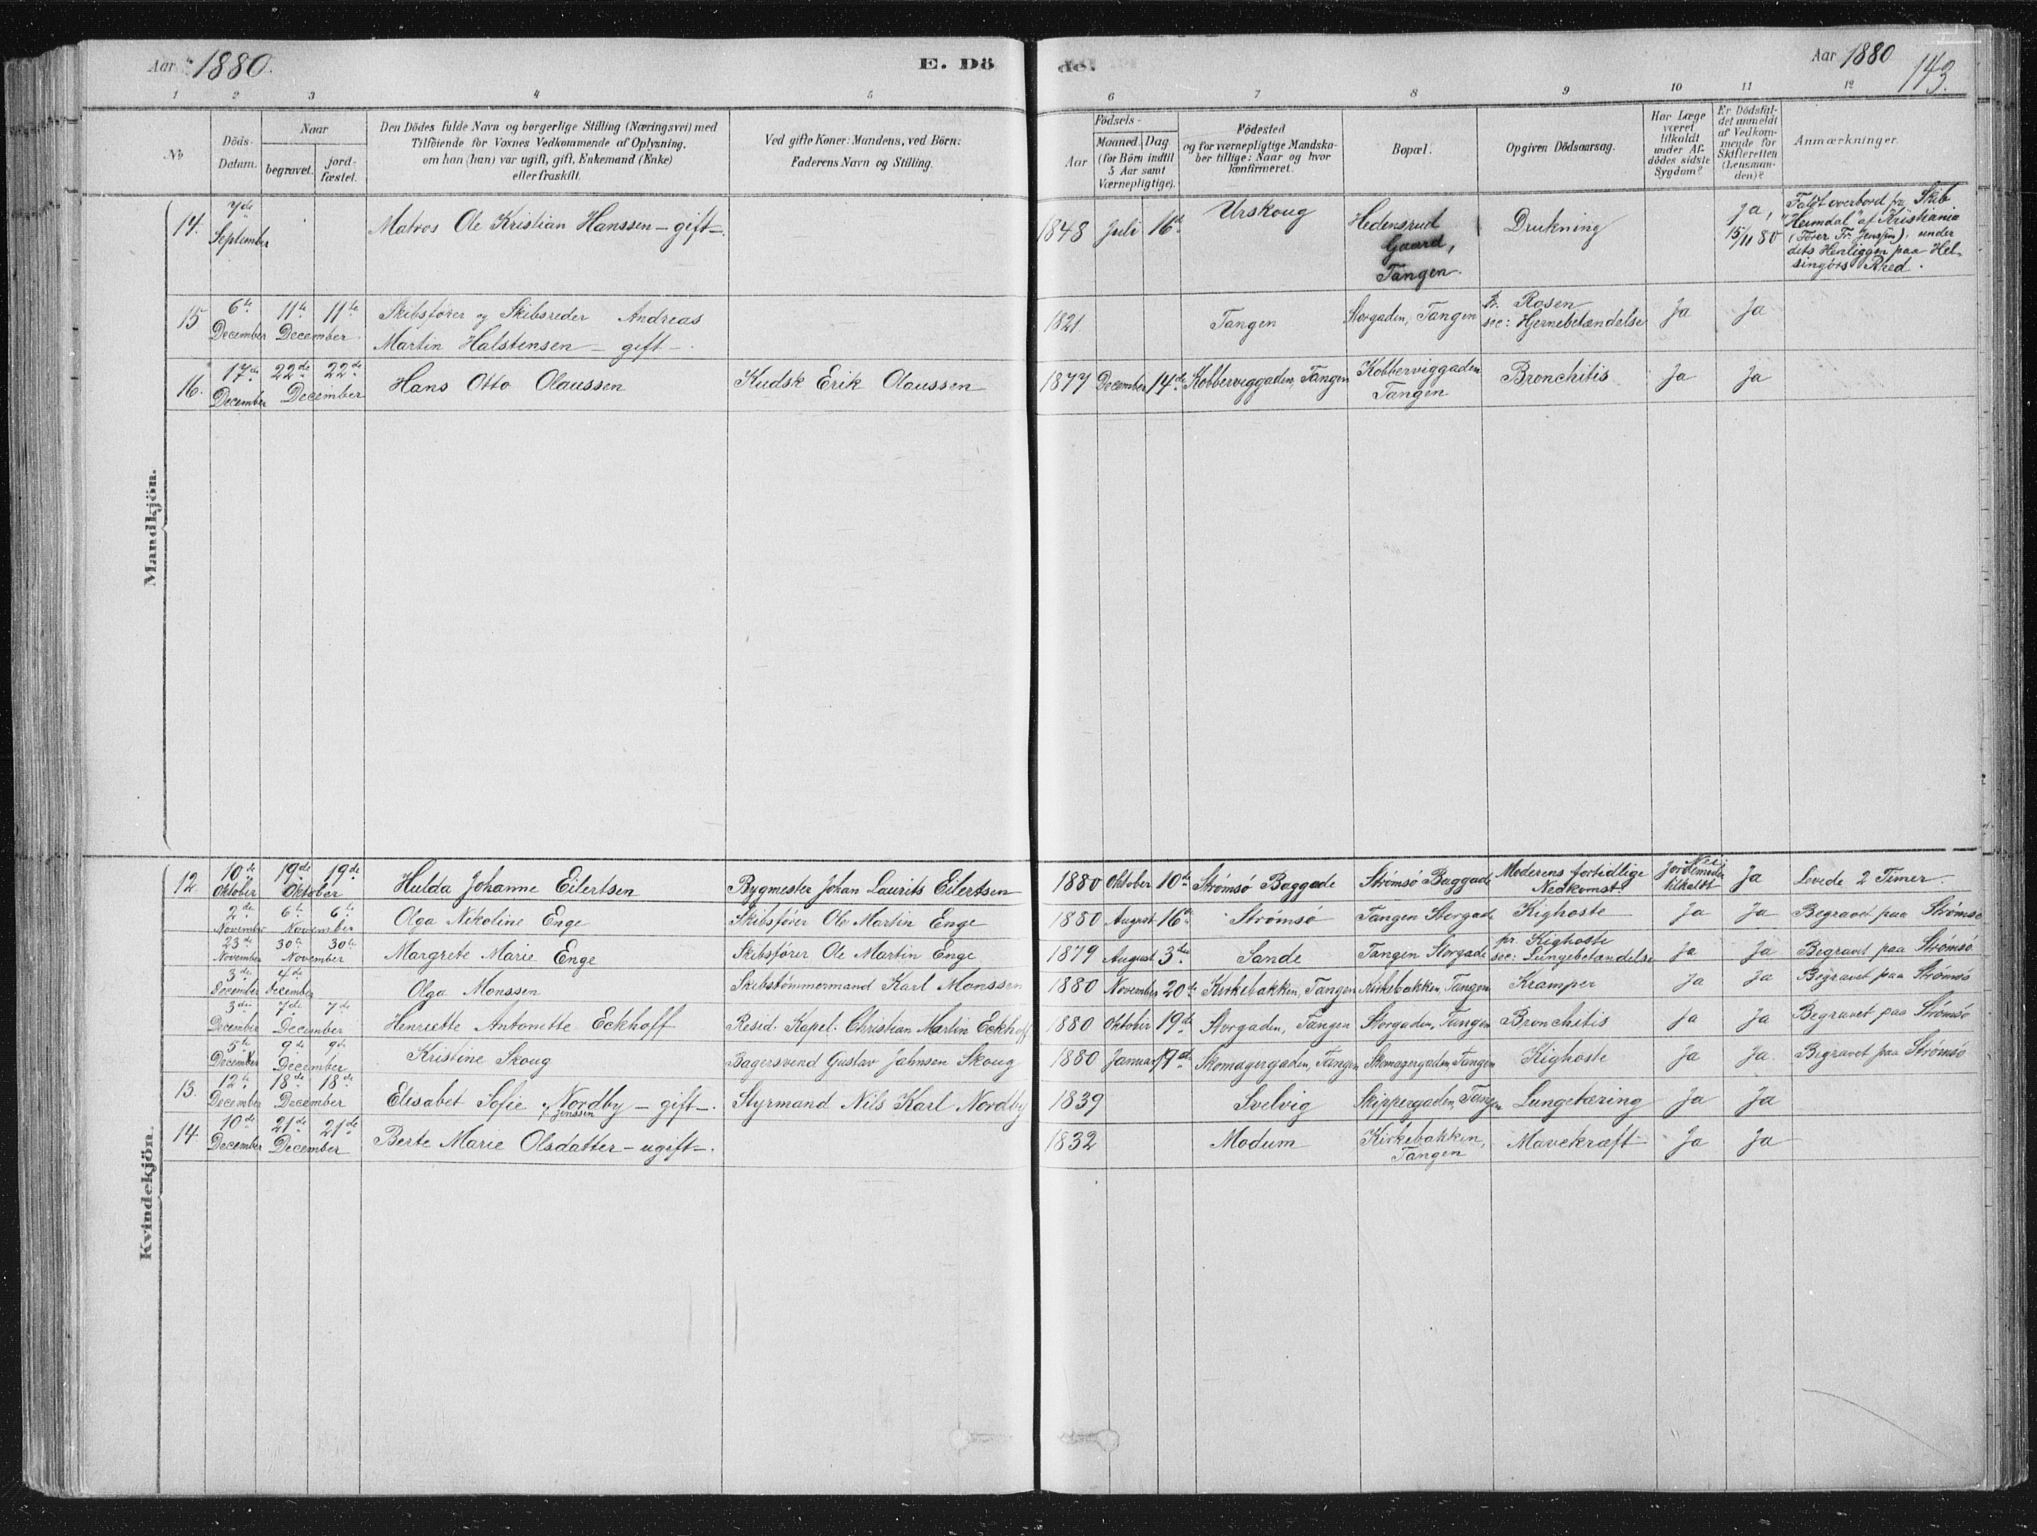 Aar 1880.
E. Dö
de.
Aar 1880
143.
1 2 3 4 5 6 7 8 9 10 11 12
No
Döds-Datum.
Naar
begravet.
jord-fæstet.
Den Dödes fulde Navn og borgerlige Stilling (Næringsvei) med
Tilföiende for Voxnes Vedkommende af Oplysning,
om han (hun) var ugift, gift, Enkemand (Enke)
eller fraskilt.
Ved gifte Koner: Mandens, ved Börn:
Faderens Navn og Stilling.
Födsels-
Aar
Maaned. Dag
(for Börn indtil
5 Aar samt
Værnepligtige).
Födested
og for værnepligtige Mandska-
ber tillige: Naar og hvor
konfirmeret.
Bopæl.
Opgiven Dödsaarsag.
Har Læge
været
tilkaldt
under Af-
dödes sidste
Sygdom?
Er Dödsfal-
det anmeldt
af Vedkom-
mende for
Skifteretten
(Lensman-
den)?
Anmærkninger.
Mandkjön.
14. 7de September Matros Ole Kristian Hanssen – gift –. 1848 Juli 16de Urskoug Hedensrud Gaard, Tangen. Drukning Ja, 15/11 80 Faldt overbord fra Skib
"Heimdal" af Kristiania
(Fører Fr. Jenssen), under
dets Henliggen paa Hel-
singörs Rhed.
15 6te December 11te 11te December Skibsfører og Skibsreder Andreas
Martin Halstensen – gift –. 1821. Tangen Storgaden, Tangen pr. Rosen
sec: Hjernebetændelse Ja Ja
16. 17de December 22de 22de December Hans Otto Olaussen Kudsk Erik Olaussen 1877 December 14de Kobberviggaden, Tangen Kobberviggaden
Tangen Bronchitis Ja Ja
Kvindekjön.
12 10de Oktober 19de 19de Oktober Hulda Johanne Eilertsen Bygmester Johan Laurits Eilertsen 1880 Oktober 10de Strømsö Baggade Strømsö Baggade Moderens fortidlige
Nedkomst Nei Jordemoder tilkaldt Ja Levede 2 Timer.
2de November 6te 6te November Olga Nikoline Enge Skibsfører Ole Martin Enge 1880 August 16de Strømsö Tangen Storgade Kighoste Ja Ja Begravet paa Strømsö
23de November 30te 30te November Margrete Marie Enge Skibsfører Ole Martin Enge 1879 August 3die Sande Tangen Storgade pr. Kighoste
sec: Lungebetændelse Ja Ja Begravet paa Strømsö
3die December 4de December Olga Monssen Skibstömmermand Karl Monssen 1880 November 20de Kirkebakken, Tangen Kirkebakken, Tangen Kramper Ja Ja Begravet paa Strømsö
3die December 7de 7de December Henriette Antonette Eckhoff Resid. Kapel. Christian Martin Eckhoff 1880 Oktober 19de Storgaden, Tangen Storgaden, Tangen Bronchitis Ja Ja Begravet paa Strømsö
5te December 9de 9de December Kristine Skoug Bagersvend Gustav Johnsen Skoug 1880 Januar 19de Skomagergaden, Tangen Skomagergaden, Tangen Kighoste Ja Ja. Begravet paa Strømsö
13. 12te December 18de 18de December Elisabet Sofie Nordby – gift –.
f. Jenssen
Styrmand Nils Karl Nordby 1839 Svelvig Skippergaden, Tangen Lungetæring Ja Ja
14. 10de December 21de 21de December Berte Marie Olsdatter – ugift –. 1832 Modum Kirkebakken,
Tangen Mavekræft Ja Ja